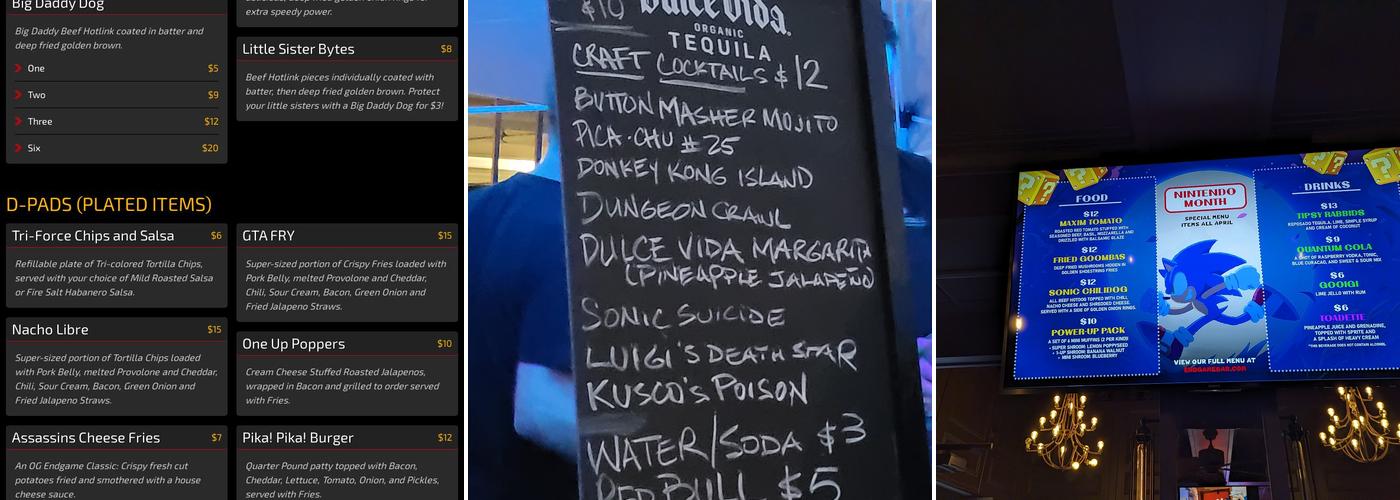 Big Daddy Dog
Big Daddy Beef Hotlink coated in batter and
deep fried golden brown.
One $5
Two $9
Three $12
Six $20
extra speedy power.
Little Sister Bytes $8
Beef Hotlink pieces individually coated with
batter, then deep fried golden brown. Protect
your little sisters with a Big Daddy Dog for $3!
D-PADS (PLATED ITEMS)
Tri-Force Chips and Salsa $6
Refillable plate of Tri-colored Tortilla Chips,
served with your choice of Mild Roasted Salsa
or Fire Salt Habanero Salsa.
Nacho Libre $15
Super-sized portion of Tortilla Chips loaded
with Pork Belly, melted Provolone and Cheddar,
Chili, Sour Cream, Bacon, Green Onion and
Fried Jalapeno Straws.
Assassins Cheese Fries $7
An OG Endgame Classic: Crispy fresh cut
potatoes fried and smothered with a house
cheese sauce.
GTA FRY $15
Super-sized portion of Crispy Fries loaded with
Pork Belly, melted Provolone and Cheddar,
Chili, Sour Cream, Bacon, Green Onion and
Fried Jalapeno Straws.
One Up Poppers $10
Cream Cheese Stuffed Roasted Jalapenos,
wrapped in Bacon and grilled to order served
with Fries.
Pika! Pika! Burger $12
Quarter Pound patty topped with Bacon,
Cheddar, Lettuce, Tomato, Onion, and Pickles,
served with Fries.
$10
Dulce Vida.
ORGANIC
TEQUILA
CRAFT COCKTAILS $12
BUTTON MASHER MOJITO
PICA·CHU #25
DONKEY KONG ISLAND
DUNGEON CRAWL
DULCE VIDA MARGARITA
(PINEAPPLE JALAPEÑO)
SONIC SUICIDE
LUIGI'S DEATH STAR
KUSCO'S POISON
WATER/SODA $3
RED BULL $5
FOOD
$12
MAXIM TOMATO
ROASTED RED TOMATO STUFFED WITH
SEASONED BEEF, BASIL, MOZZARELLA AND
DRIZZLED WITH BALSAMIC GLAZE
$12
FRIED GOOMBAS
DEEP FRIED MUSHROOMS HIDDEN IN
GOLDEN SHOESTRING FRIES
$12
SONIC CHILIDOG
ALL BEEF HOTDOG TOPPED WITH CHILI,
NACHO CHEESE AND SHREDDED CHEESE.
SERVED WITH A SIDE OF GOLDEN ONION RINGS.
$10
POWER-UP PACK
A SET OF 6 MINI MUFFINS (2 PER KIND)
- SUPER SHROOM: LEMON POPPYSEED
- 1-UP SHROOM: BANANA WALNUT
- MINI SHROOM: BLUEBERRY
NINTENDO
MONTH
SPECIAL MENU
ITEMS ALL APRIL
VIEW OUR FULL MENU AT
ENDGAMEBAR.COM
DRINKS
$13
TIPSY RABBIDS
REPOSADO TEQUILA, LIME, SIMPLE SYRUP
AND CREAM OF COCONUT
$9
QUANTUM COLA
A SHOT OF RASPBERRY VODKA, TONIC,
BLUE CURACAO, AND SWEET & SOUR MIX
$6
GOOIGI
LIME JELLO WITH RUM
$6
TOADETTE
PINEAPPLE JUICE AND GRENADINE,
TOPPED WITH SPRITE AND
A SPLASH OF HEAVY CREAM
*THIS BEVERAGE DOES NOT CONTAIN ALCOHOL